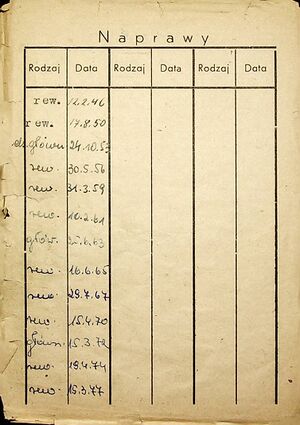 Naprawy
Rodzaj Data Rodzaj Data Rodzaj Data
rew. 12.2.46
rew. 17.8.50
główn 24.10.53
rew. 30.5.56
rew. 31.3.59
rew. 10.2.61
głów. 25.6.63
rew. 16.6.65
rew. 29.7.67
rew. 15.4.70
główn. 15.3.72
rew. 19.4.74
rew. 15.3.77